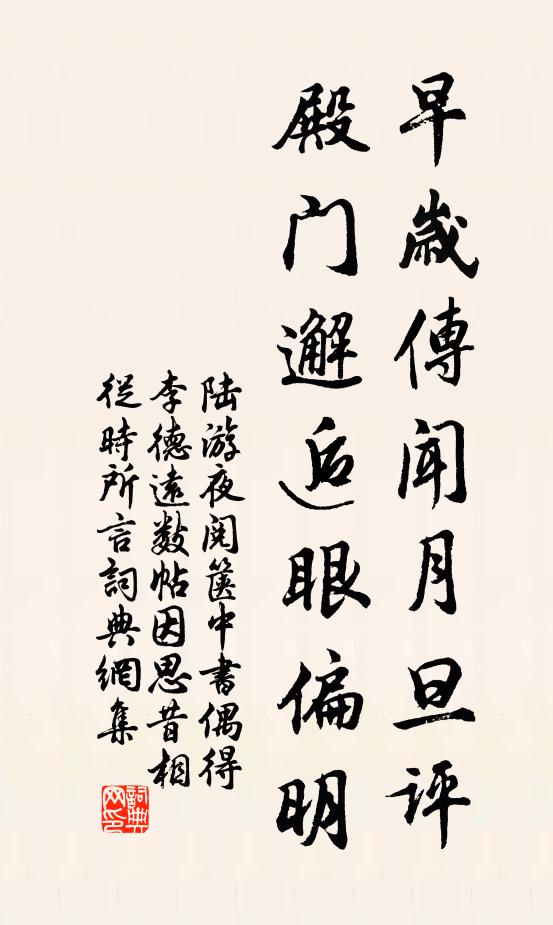 早歲傳聞月旦评
殿门邂逅眼偏明
陆游夜阅箧中書偶得
李德遠数帖因思昔相
從時所言詞典網集
詞典网印